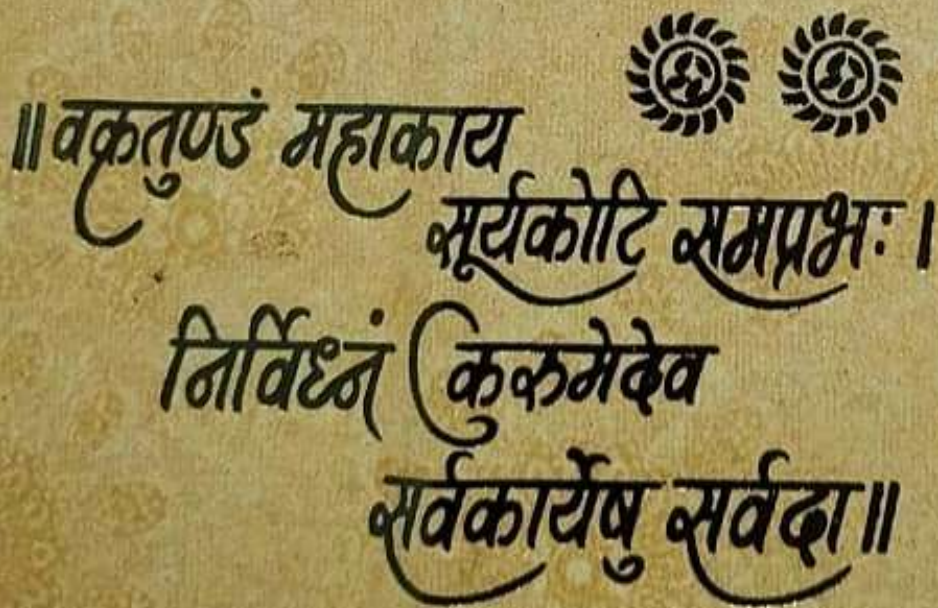 ॥ वक्रतुण्डं महाकाय
सूर्यकोटि समप्रभः ।
निर्विध्नं कुरुमेदेव
सर्वकार्येषु सर्वदा ॥